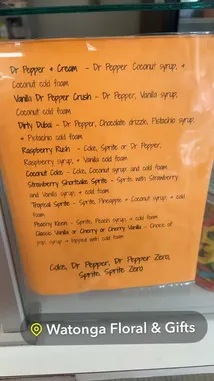 Dr Pepper + Cream - Dr Pepper Coconut syrup, +
Coconut cold foam
Vanilla Dr Pepper Crush - Dr Pepper, Vanilla syrup,
Coconut cold foam
Dirty Dubai - Dr Pepper, Chocolate drizzle, Pistachio syrup,
+ Pistachio cold foam
Raspberry Rush - Coke, Sprite or Dr Pepper,
Raspberry syrup, + Vanilla cold foam
Coconut Coke - Coke, Coconut syrup and cold foam
Strawberry Shortcake Sprite - Sprite with Strawberry
and Vanilla syrup, + cold foam
Tropical Sprite - Sprite, Pineapple + Coconut syrup, + cold
foam
Peachy Keen - Sprite, Peach syrup, + cold foam
Classic Vanilla or Cherry or Cherry Vanilla - Choice of
pop, syrup + topped with cold foam
Coke, Dr Pepper, Dr Pepper Zero,
Sprite, Sprite Zero
Watonga Floral & Gifts